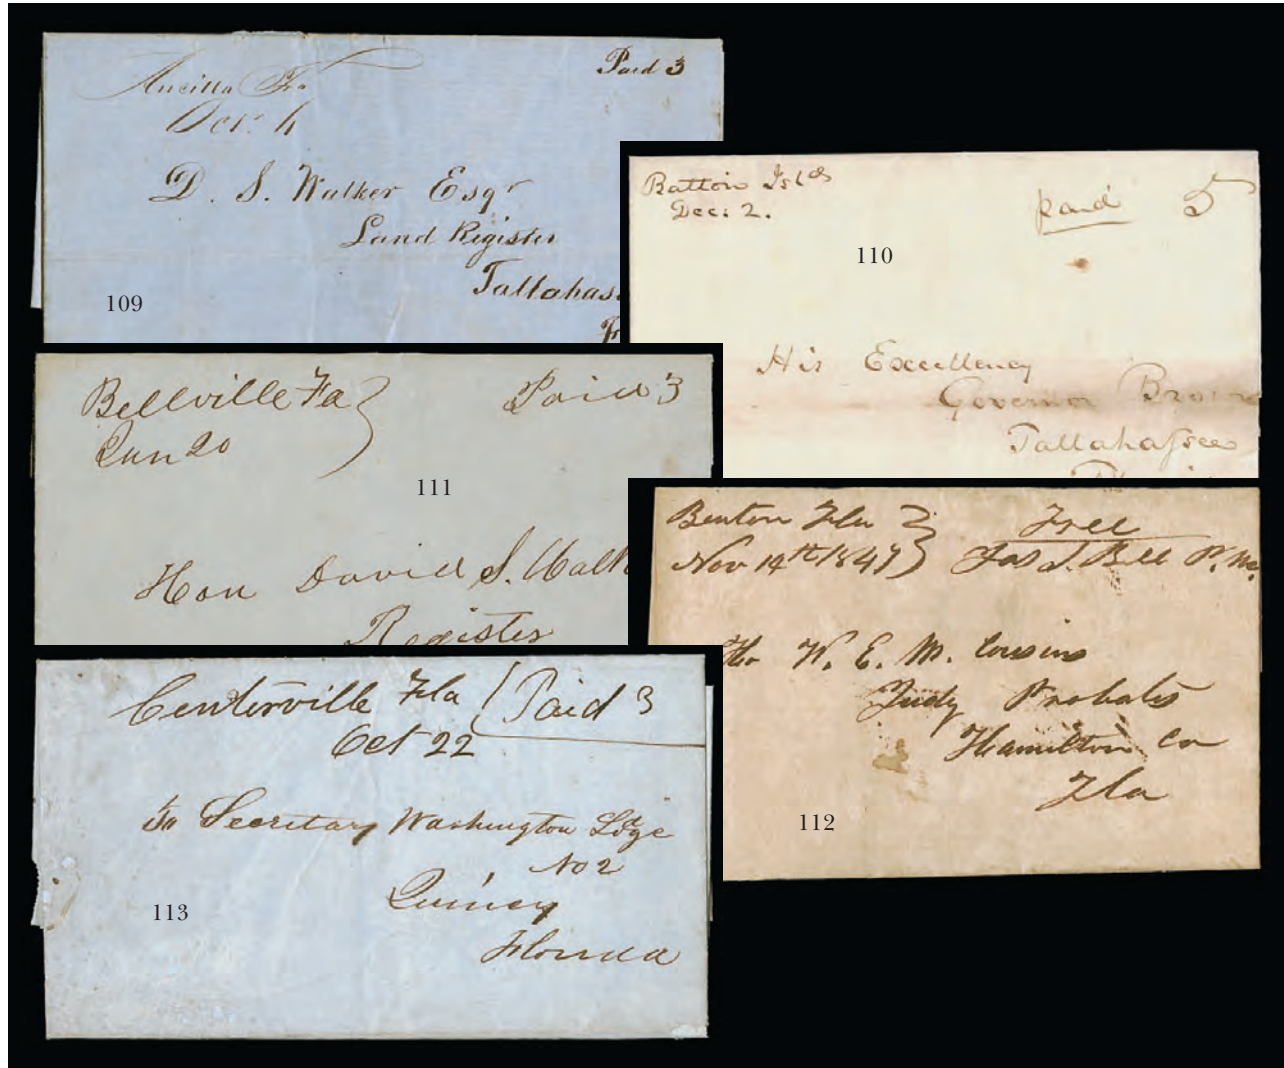 Aucilla Fa
Paid 3
Oct. 4
D. S. Walker Esqr
Land Register
Tallahas
109
Batton Islds
Dec. 2.
paid 5
110
His Excellency
Governor Brown
Tallahassee
Bellville Fa
Paid 3
Jun 20
111
Hon David S. Walk
Register
Benton Fla
Free
Nov 14th 1847
Jas J. Bell P. M.
W. E. M. Cousins
Judg Probates
Hamilton Co
Fla
112
Centerville Fla
Paid 3
Oct 22
To Secretary Washington Lodge
No 2
Quincy
Florida
113